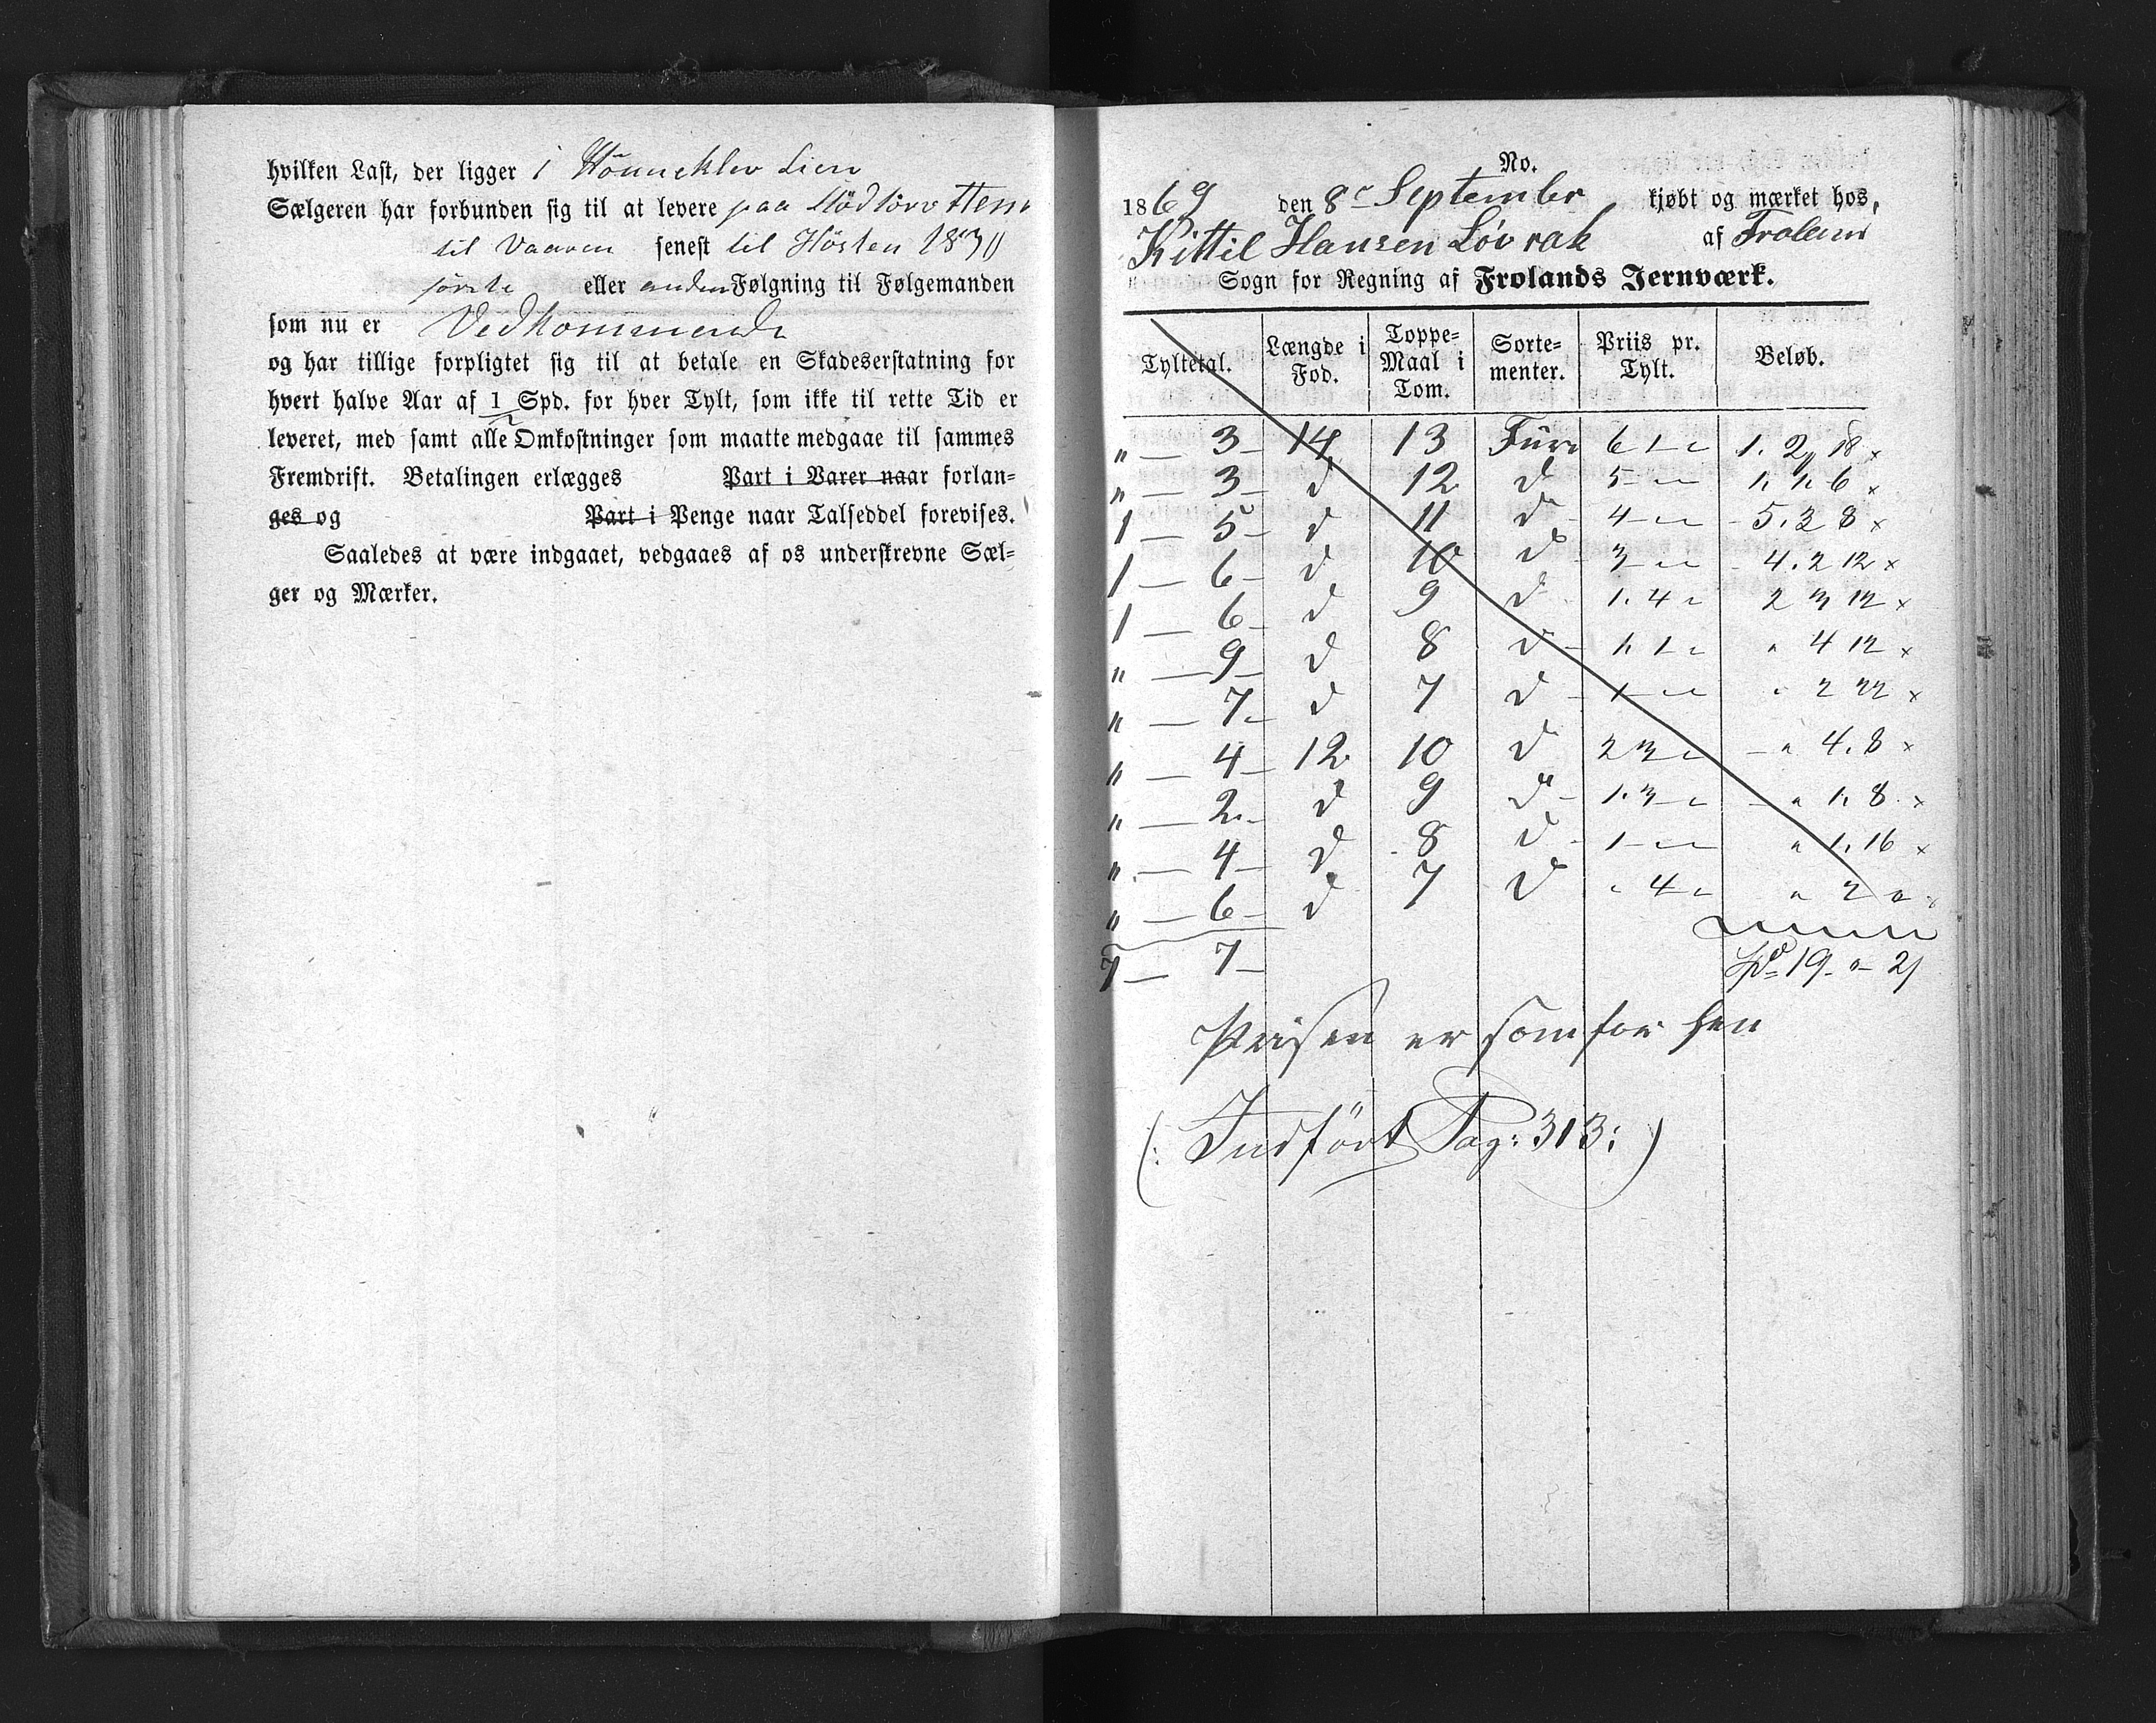 hvilken Last, der ligger i Lien
Sælgeren har forbunden sig til at levere paa
til Vaaren senest til Hösten 1870
förste eller anden Følgning til Følgemanden
som nu er Vedkommende
og har tillige forpligtet sig til at betale en Skadeserstatning for
hvert halve Aar af 1 Spd. for hver Tylt, som ikke til rette Tid er
leveret, med samt alle Omkostninger som maatte medgaae til sammes
Fremdrift. Betalingen erlægges Part i Varer naar forlan-
ges og Part i Penge naar Talseddel forevises.
Saaledes at være indgaaet, vedgaaes af os underskrevne Sæl-
ger og Mærker.
No.
1869 den 8e September kjøbt og mærket hos,
Kittil Hansen Lövrak af Froland
Sogn for Regning af Frolands Jernværk.
Tyltetal. Længde i Fod. Toppe-Maal i Tom. Sorte-menter. Priis pr. Tylt. Beløb.
" — 3 — 14 13 Furu 6 — " 1. 2, 18 x
" — 3 — d 12 d 5 — " 1. 1. 6 x
1 — 5 — d 11 d 4 — " 5. 3 8 x
1 — 6 — d 10 d 3 — " 4. 2 12 x
1 — 6 — d 9 d 1. 4 " 2 3 12 x
" — 9 — d 8 d 1. 1 " " 4 12 x
" — 7 — d 7 d 1 — " " 2 22 x
" — 4 — 12 10 d 2 3 " " 4. 8 x
" — 2 — d 9 d 1. 3 " " 1. 8 x
" — 4 — d 8 d 1 — " " 1. 16 x
" — 6 — d 7 d " 4 " " 2 " x
7 — 7 — Spd 19 - " - 21
Prisen er som for hen
(: Indfört Pag: 313 :)